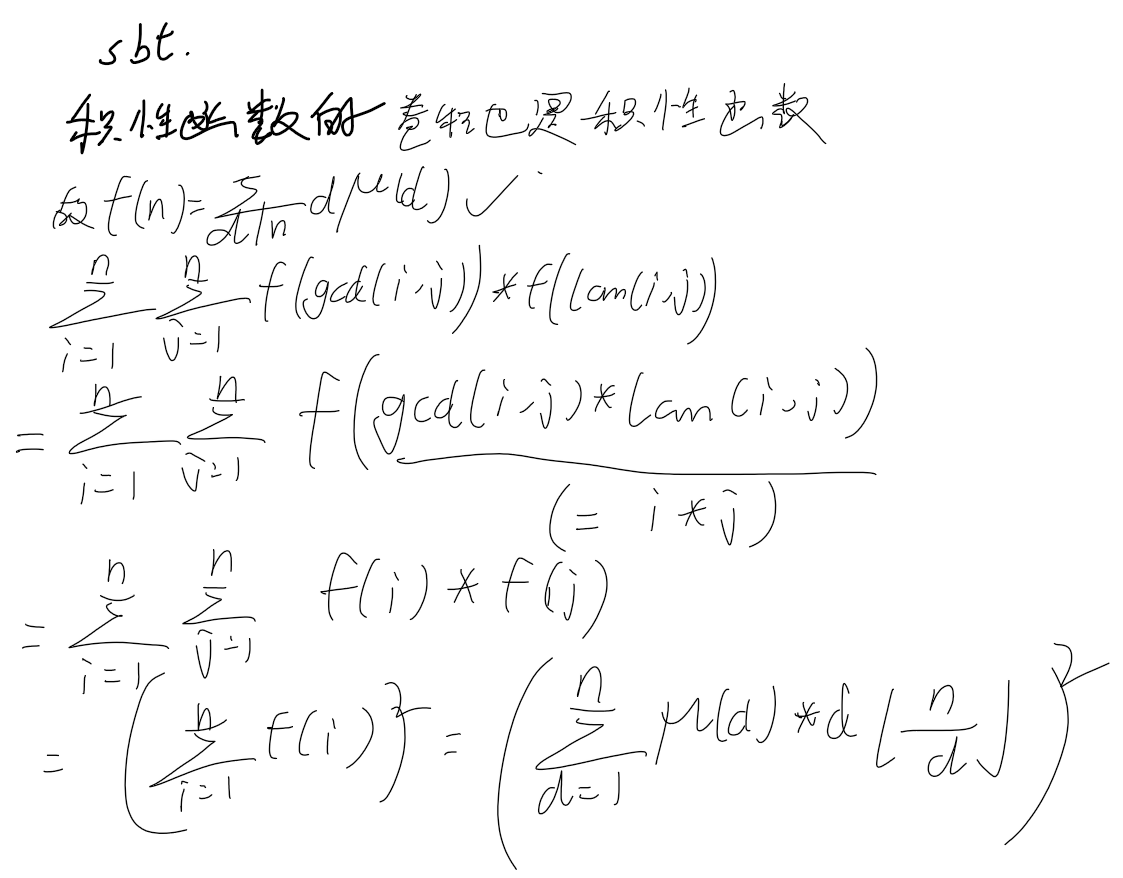 sbt.
积性函数的卷积也是积性函数
故 f(n)=∑_{d|n} dμ(d) ✓
∑_{i=1}^{n} ∑_{j=1}^{n} f(gcd(i,j))*f(lcm(i,j))
= ∑_{i=1}^{n} ∑_{j=1}^{n} f(gcd(i,j)*lcm(i,j))
(= i*j)
= ∑_{i=1}^{n} ∑_{j=1}^{n} f(i)*f(j)
= (∑_{i=1}^{n} f(i))^2 = (∑_{d=1}^{n} μ(d)*d⌊n/d⌋)^2